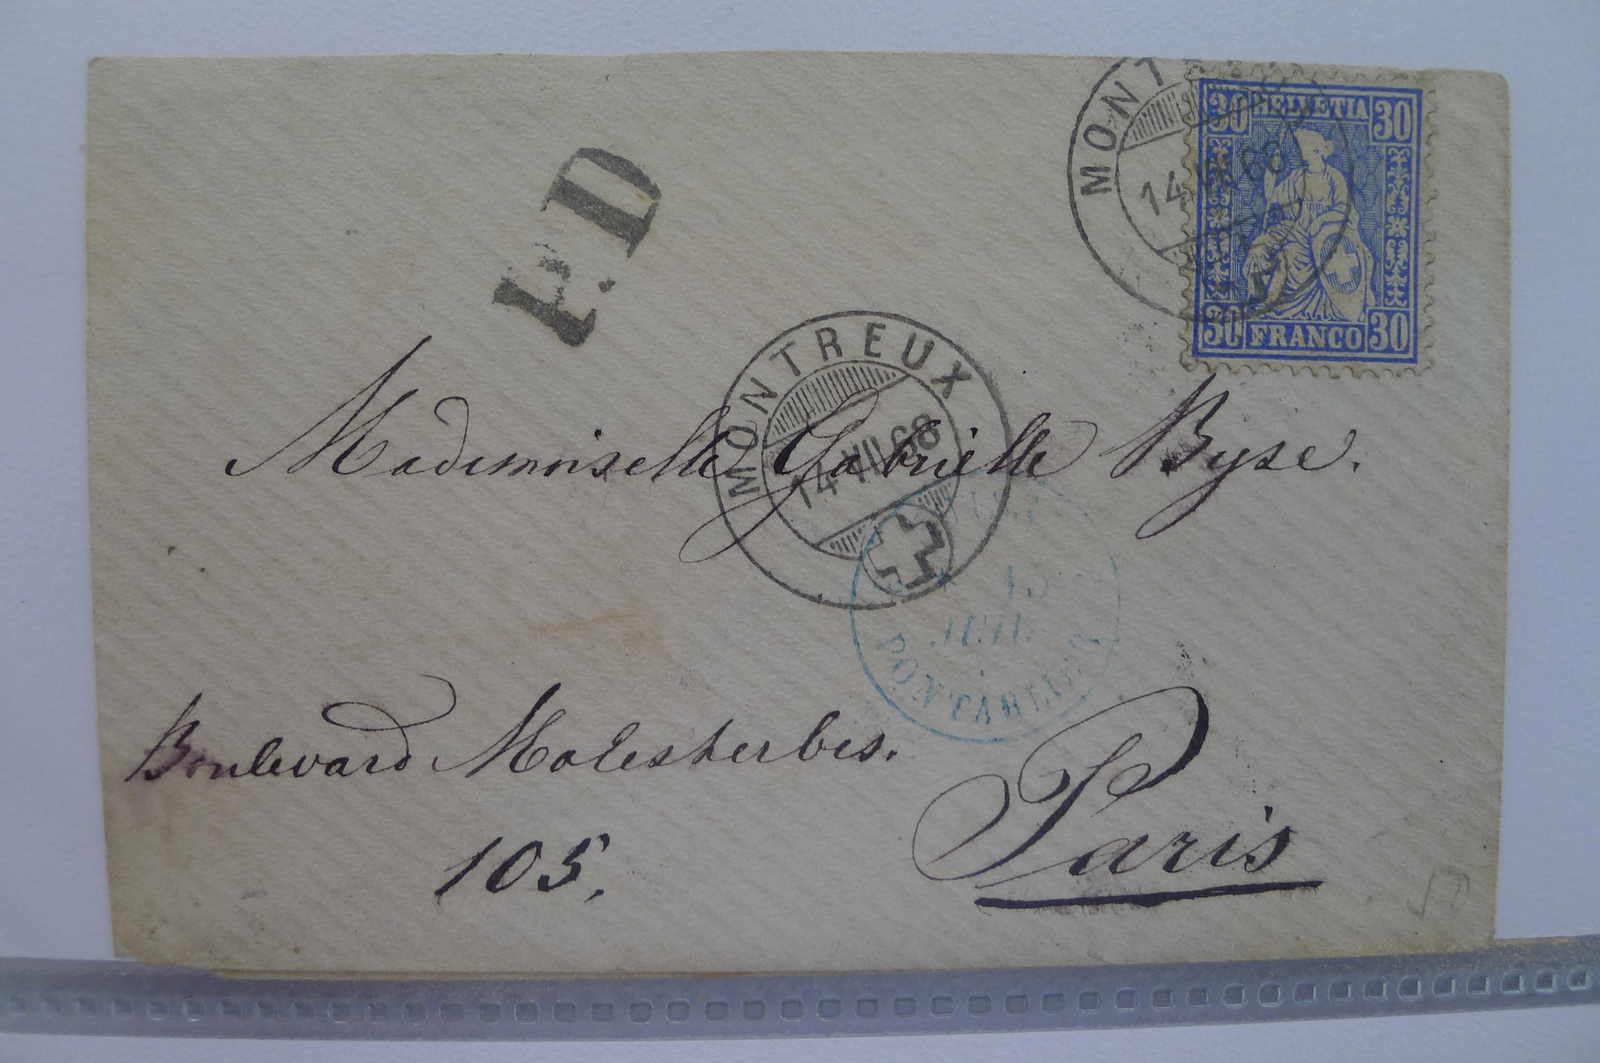 P.D
MONTREUX
14 VII 68
30 HELVETIA 30
30 FRANCO 30
MONTREUX
14 VII 68
Mademoiselle Gabrielle Byse.
15
JUIL.
PONTARLIER
Boulevard Malesherbes.
105.
Paris